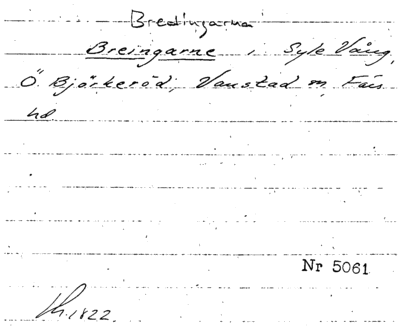 Bredingarna
Breingarne i Syle Vång,
Ö. Björkeröd, Vanstad m, Färs
hd
Nr 5061
1822.